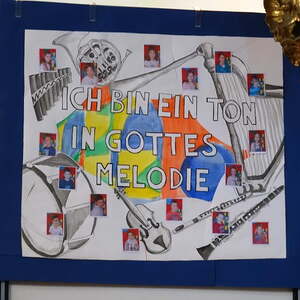 ICH BIN EIN TON
IN GOTTES
MELODIE